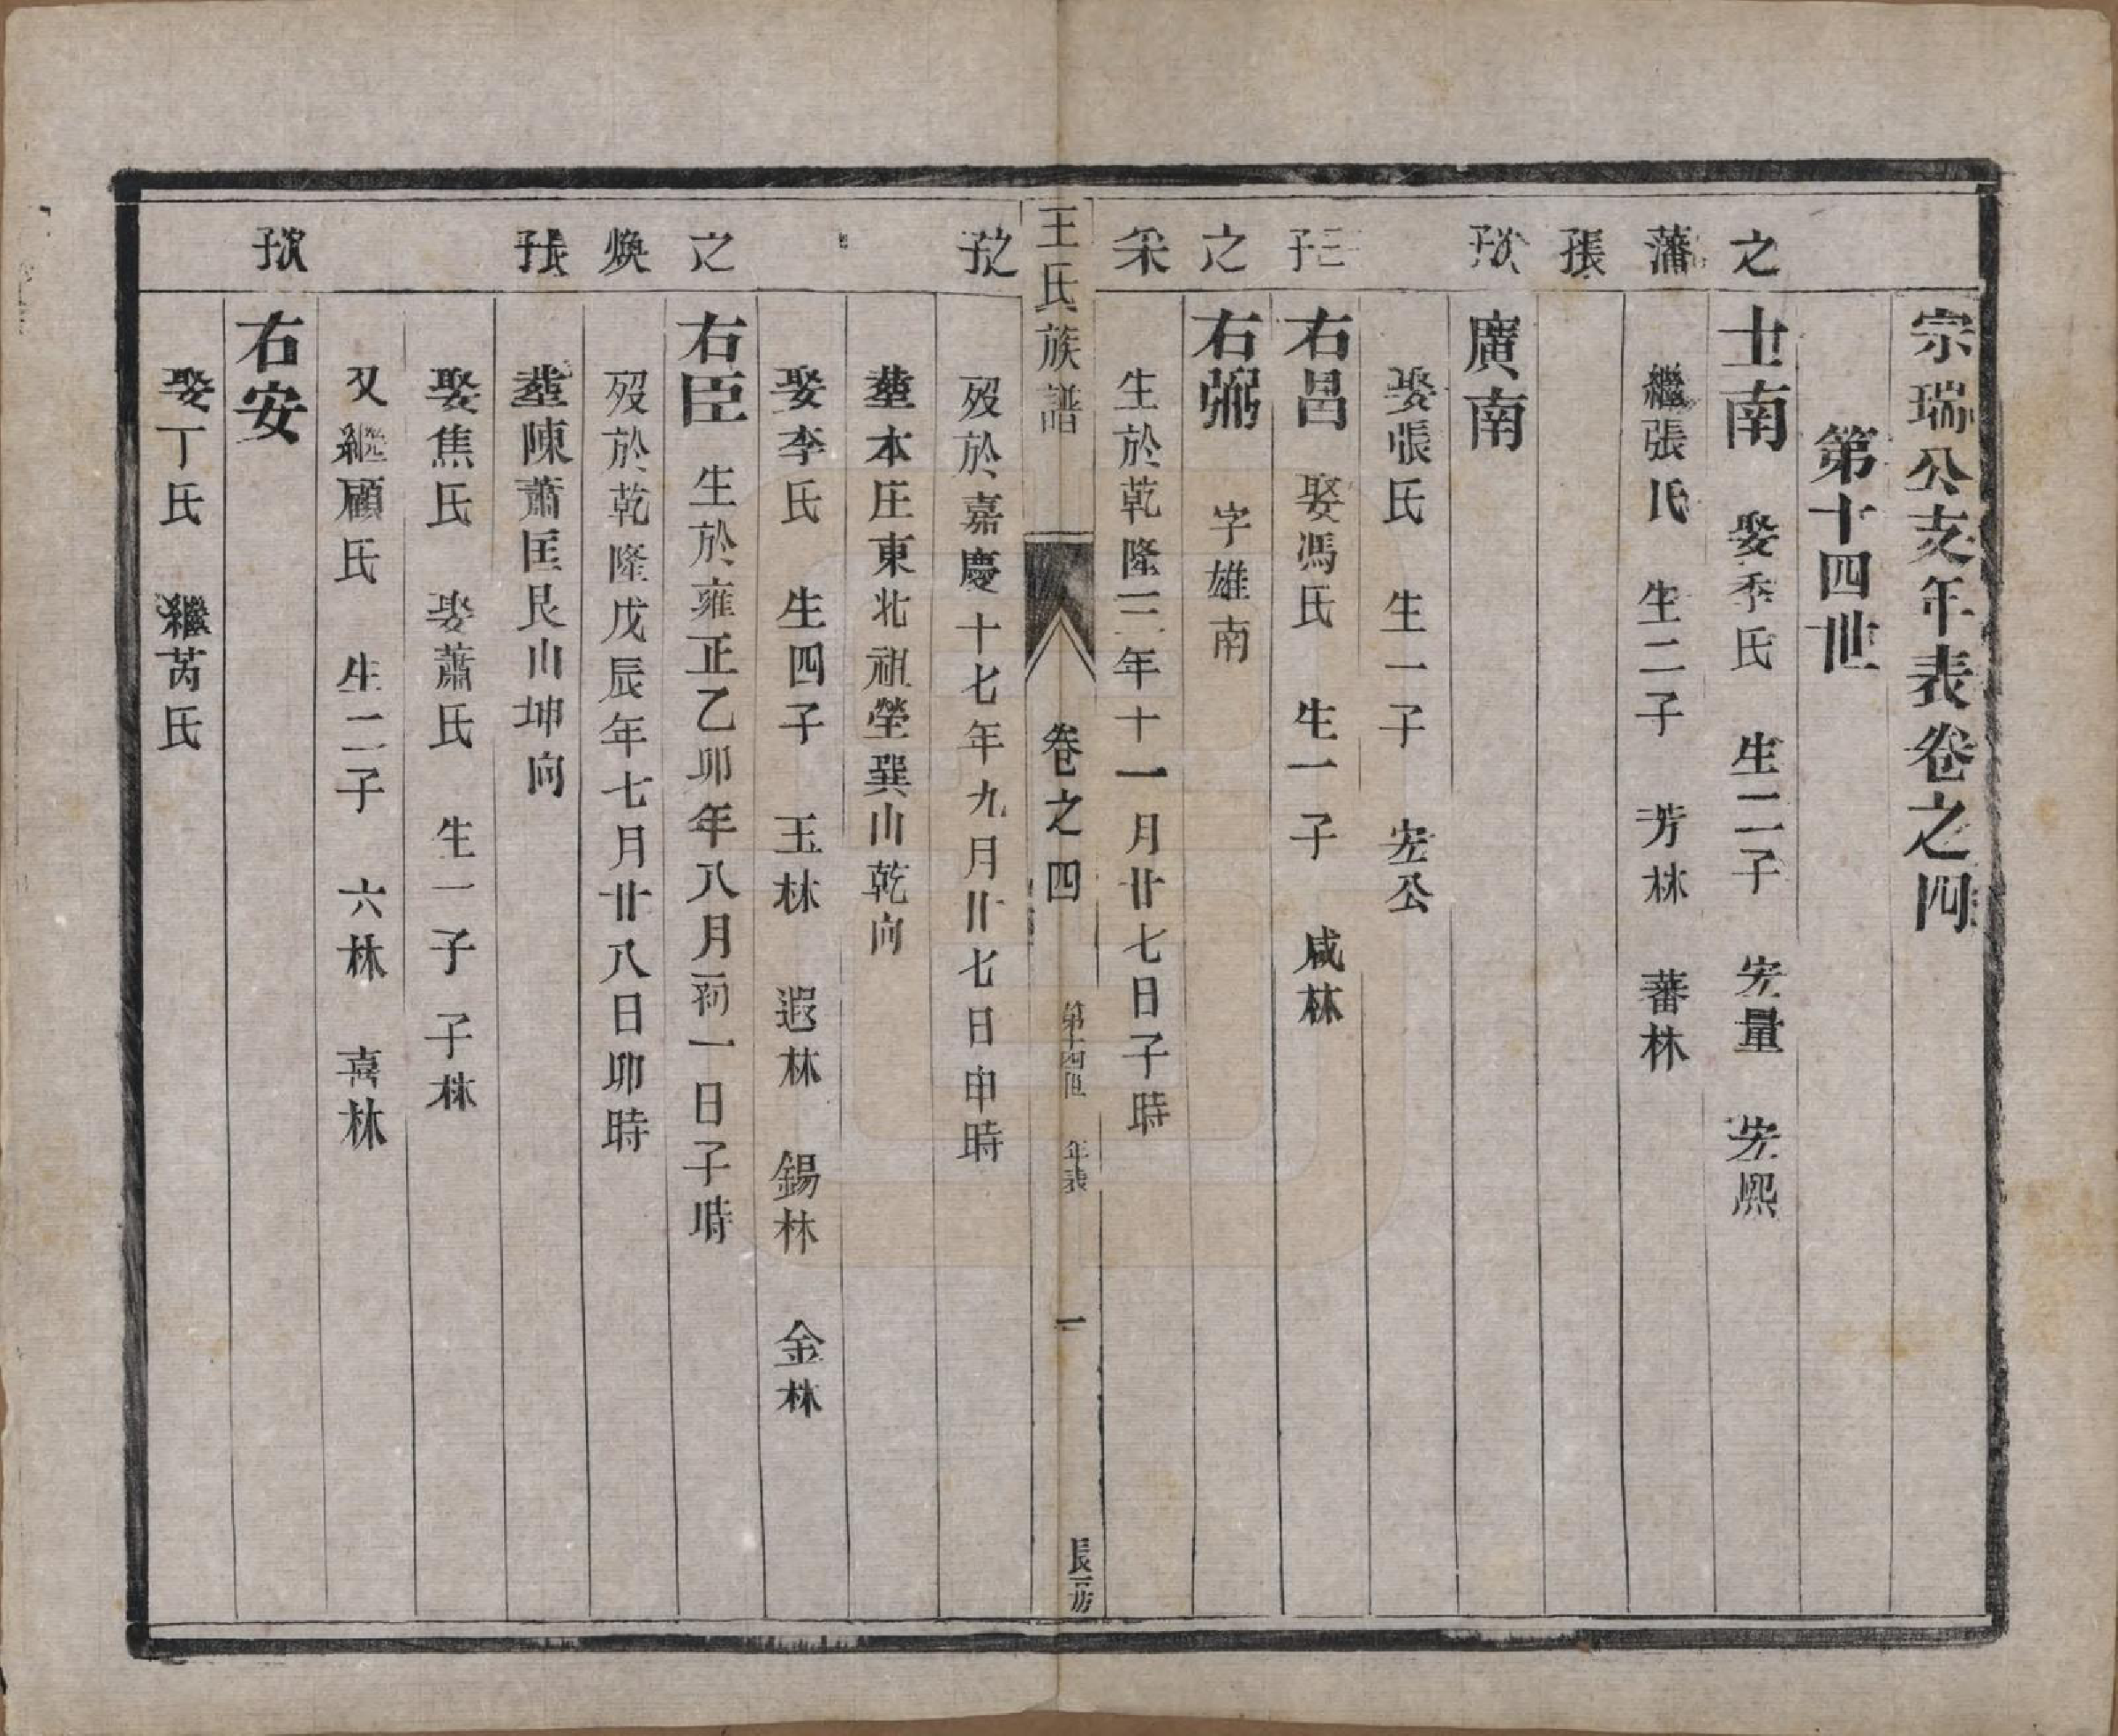 宗瑞公支年表卷之四
第十四世
之 士南 娶季氏 生二子 宏量 宏熙
藩 繼張氏 生二子 芳林 蕃林
張子
次子 廣南
娶張氏 生一子 宏公
三子 右昌 娶馮氏 生一子 咸林
之 右弼 字雄南
采 生於乾隆三年十一月廿七日子時
王氏族譜 卷之四 第十四世 年表 一 長房
之子 歿於嘉慶十七年九月廿七日申時
塟本庄東北祖塋巽山乾向
娶李氏 生四子 玉林 遐林 錫林 金林
之 右臣 生於雍正乙卯年八月初一日子時
煥 歿於乾隆戊辰年七月廿八日卯時
長子 塟陳蕭匡艮山坤向
娶焦氏 娶蕭氏 生一子 子林
又繼顧氏 生二子 六林 喜林
次子 右安
娶丁氏 繼芮氏